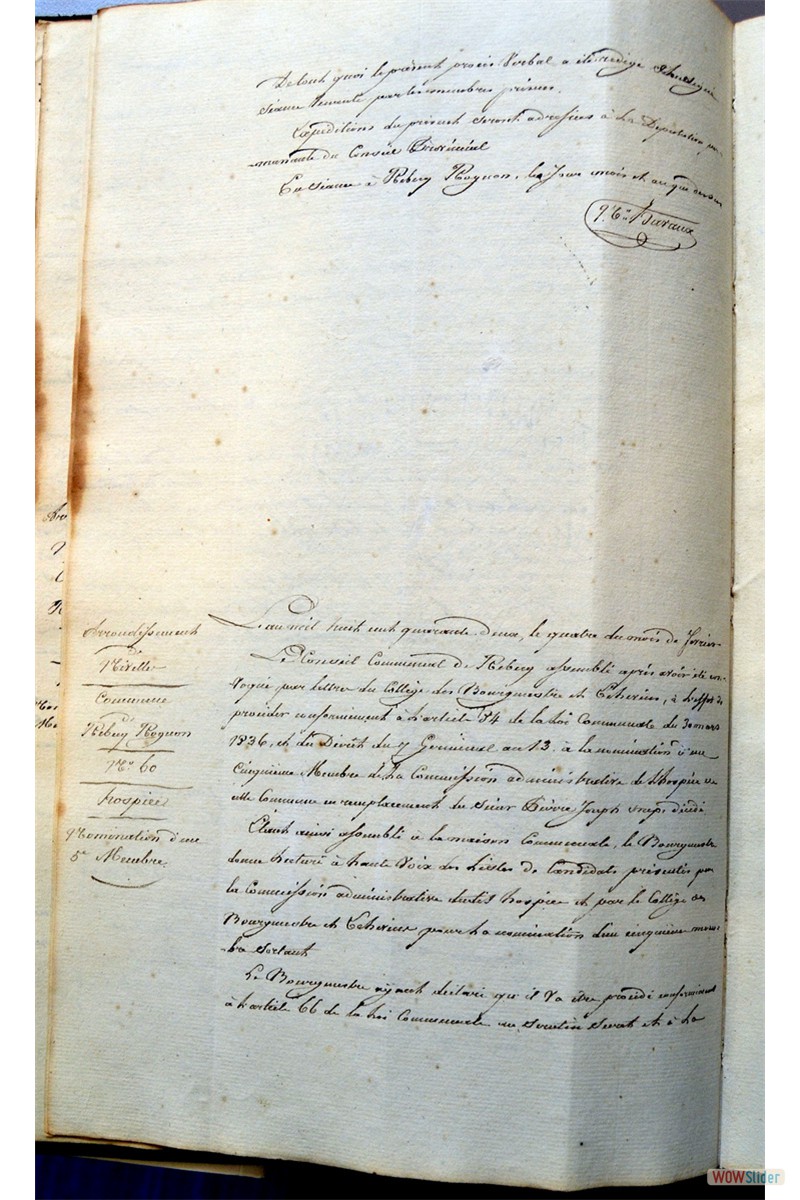 De tout quoi le présent procès Verbal a été rédigé & soussigné
séance tenante par les membres présens.
Expéditions du présent seront adressées à La Députation per-
manente du Conseil Provincial
En séance à Rebecq Rognon, les Jour mois et an que dessus
Arrondissement
de
Nivelles
Commune
de
Rebecq Rognon
N° 60
hospices
Nomination d'un
5e Membre.
L'an mil huit cent quarante deux, le quatre du mois de Février
Le Conseil Communal de Rebecq assemblé après avoir été con-
voqué par lettre du Collège des Bourgmestre et Echevins, à l'effet de
procéder conformément à L'article 84 de la Loi Communale du 30 mars
1836, et du Décrêt du 7 Germinal an 13. à la nomination d'un
Cinquième Membre de La Commission administrative de L'hospice de
cette Commune en remplacement du Sieur Pierre Joseph décédé
Etant ainsi assemblé à la maison Communale, le Bourgmestre
donne Lecture à haute Voix des Listes de Candidats présentées par
la Commission administrative desdits hospices et par le Collège des
Bourgmestre et Echevins pour La nomination d'un cinquième mem-
bre sortant
Le Bourgmestre ayant déclaré qu'il va être procédé conformément
à L'article 66 de la Loi Communale au Scrutin Secret et à La
WOWSlider